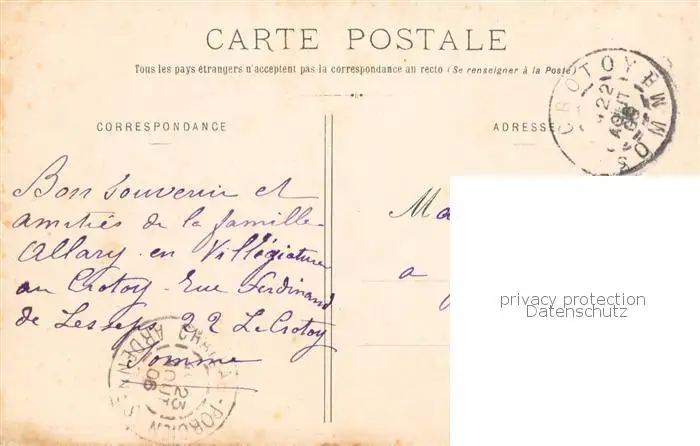 CARTE POSTALE
Tous les pays étrangers n'acceptent pas la correspondance au recto (Se renseigner à la Poste)
CORRESPONDANCE
ADRESSE
CROTOY SOMME
22
AOUT
Bon souvenir et
amitiés de la famille
Allary en Villégiature
au Crotoy - Rue Ferdinand
de Lesseps 22 Le Crotoy
Somme
Ma
a
privacy protection
Datenschutz
PORCIEN ARDENNES
23
AOUT
06